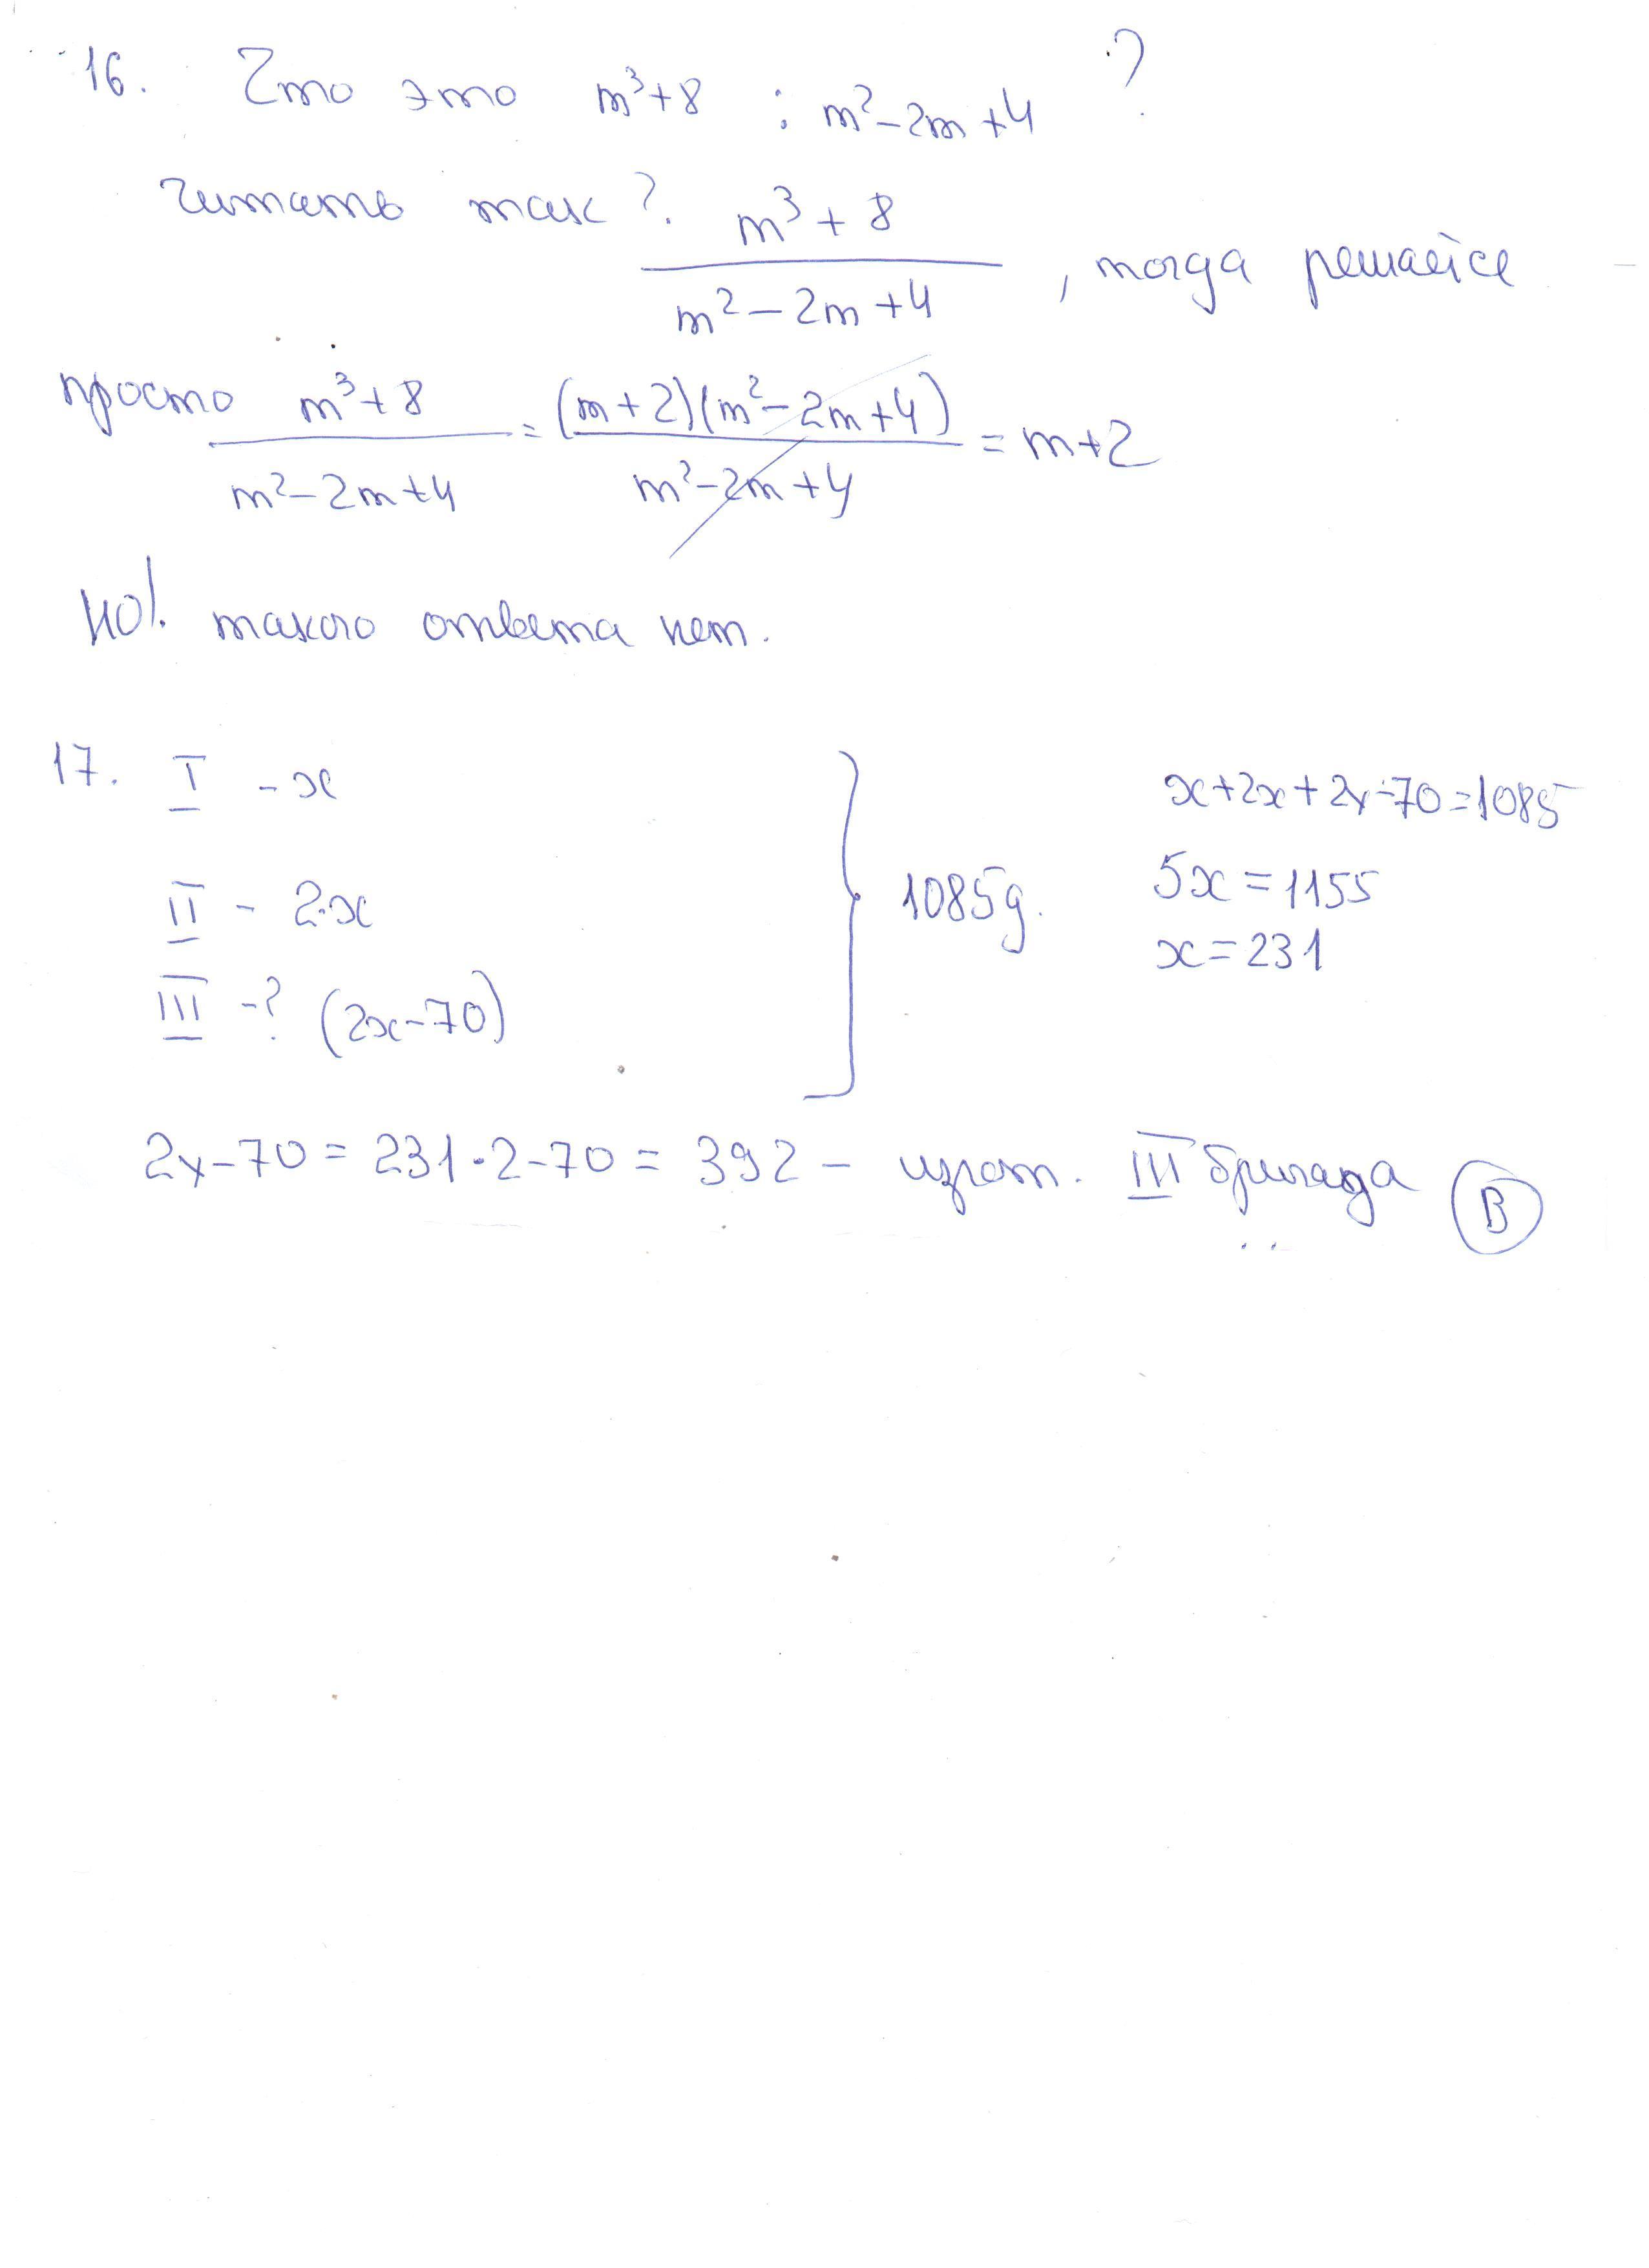 16. Что это m³+8 : m²-2m+4 ?
Читать так? \frac{m³+8}{m²-2m+4}, тогда решается
просто \frac{m³+8}{m²-2m+4} = \frac{(m+2)(m²-2m+4)}{m²-2m+4} = m+2
Но! такого ответа нет.
17. I - x
x+2x+2x-70=1085
II - 2·x
1085д.
5x=1155
x=231
III -? (2x-70)
2x-70=231·2-70=392 - изгот. III бригада (B)